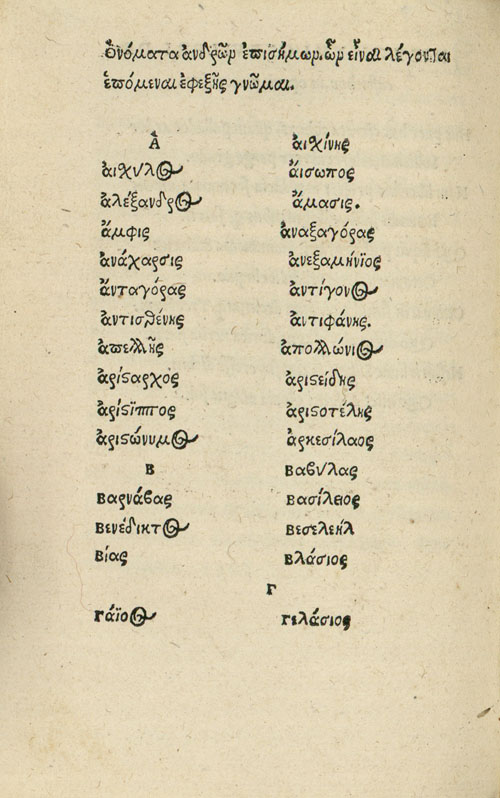 Ὀνόματα ἀνδρῶν ἐπισήμων. ὧν εἶναι λέγονται
ἑπόμεναι ἐφεξῆς γνῶμαι.
Α
αἰχύλος
ἀλέξανδρος
ἄμφις
ἀνάχαρσις
ἀνταγόρας
ἀντισθένης
ἀπελλῆς
ἀρίσταρχος
ἀρίστιππος
ἀριστώνυμος
Β
βαρνάβας
βενέδικτος
βίας
γάϊος
αἰχίνης
αἴσωπος
ἄμασις.
ἀναξαγόρας
ἀνεξαμήνϊος
ἀντίγονος
ἀντιφάνης.
ἀπολλώνιος
ἀριστείδης
ἀριστοτέλης
ἀρκεσίλαος
βαβύλας
βασίλειος
βεσελεὴλ
βλάσιος
Γ
γελάσιος